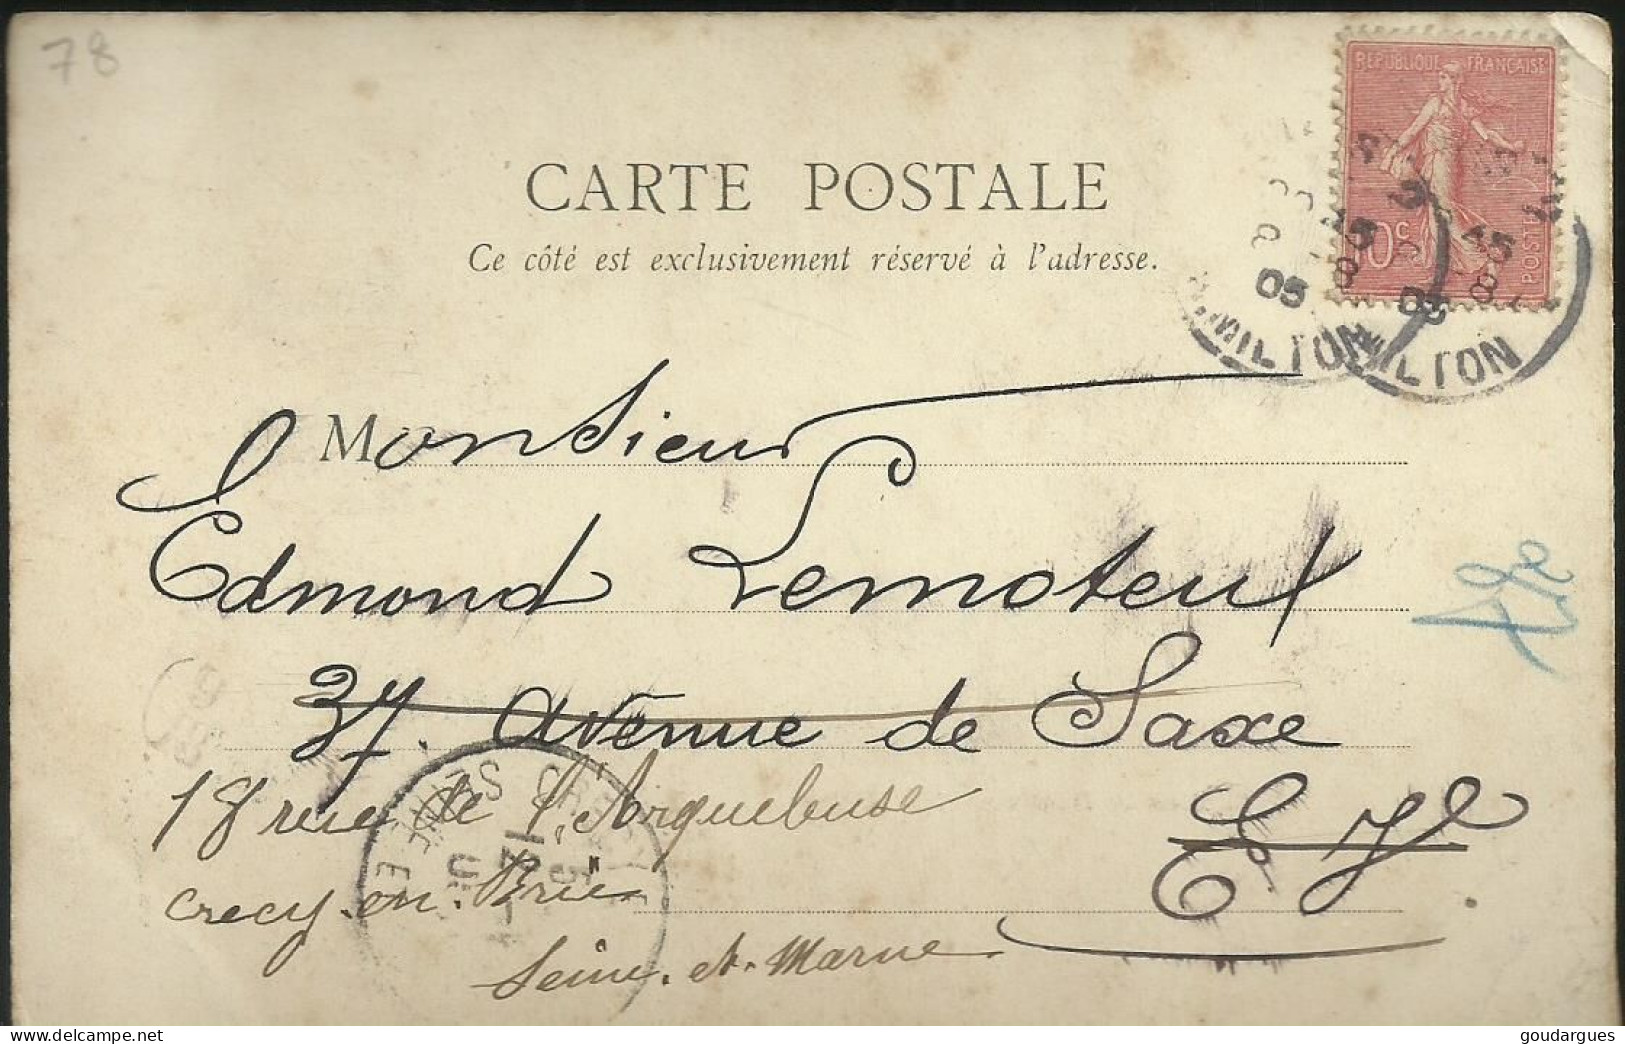 78
REPUBLIQUE FRANÇAISE
10c
POSTES
MILTON MILTON
05 05
CARTE POSTALE
Ce côté est exclusivement réservé à l'adresse.
Monsieur
Edmond Lemoteux
37. Avenue de Saxe
E. V.
18 rue de l'Arquebuse
Crecy-en-Brie
Seine-et-Marne
CRECY
SEINE ET
goudargues - delcampe.net